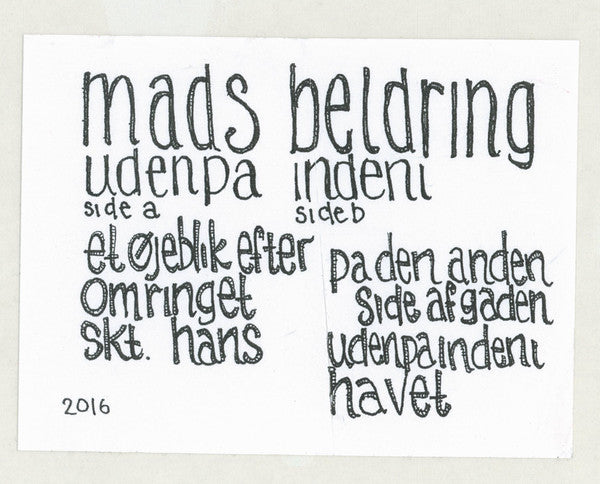 mads beldring
udenpa indeni
side a
et øjeblik efter
omringet
skt. hans
side b
pa den anden
side af gaden
udenpa indeni
havet
2016